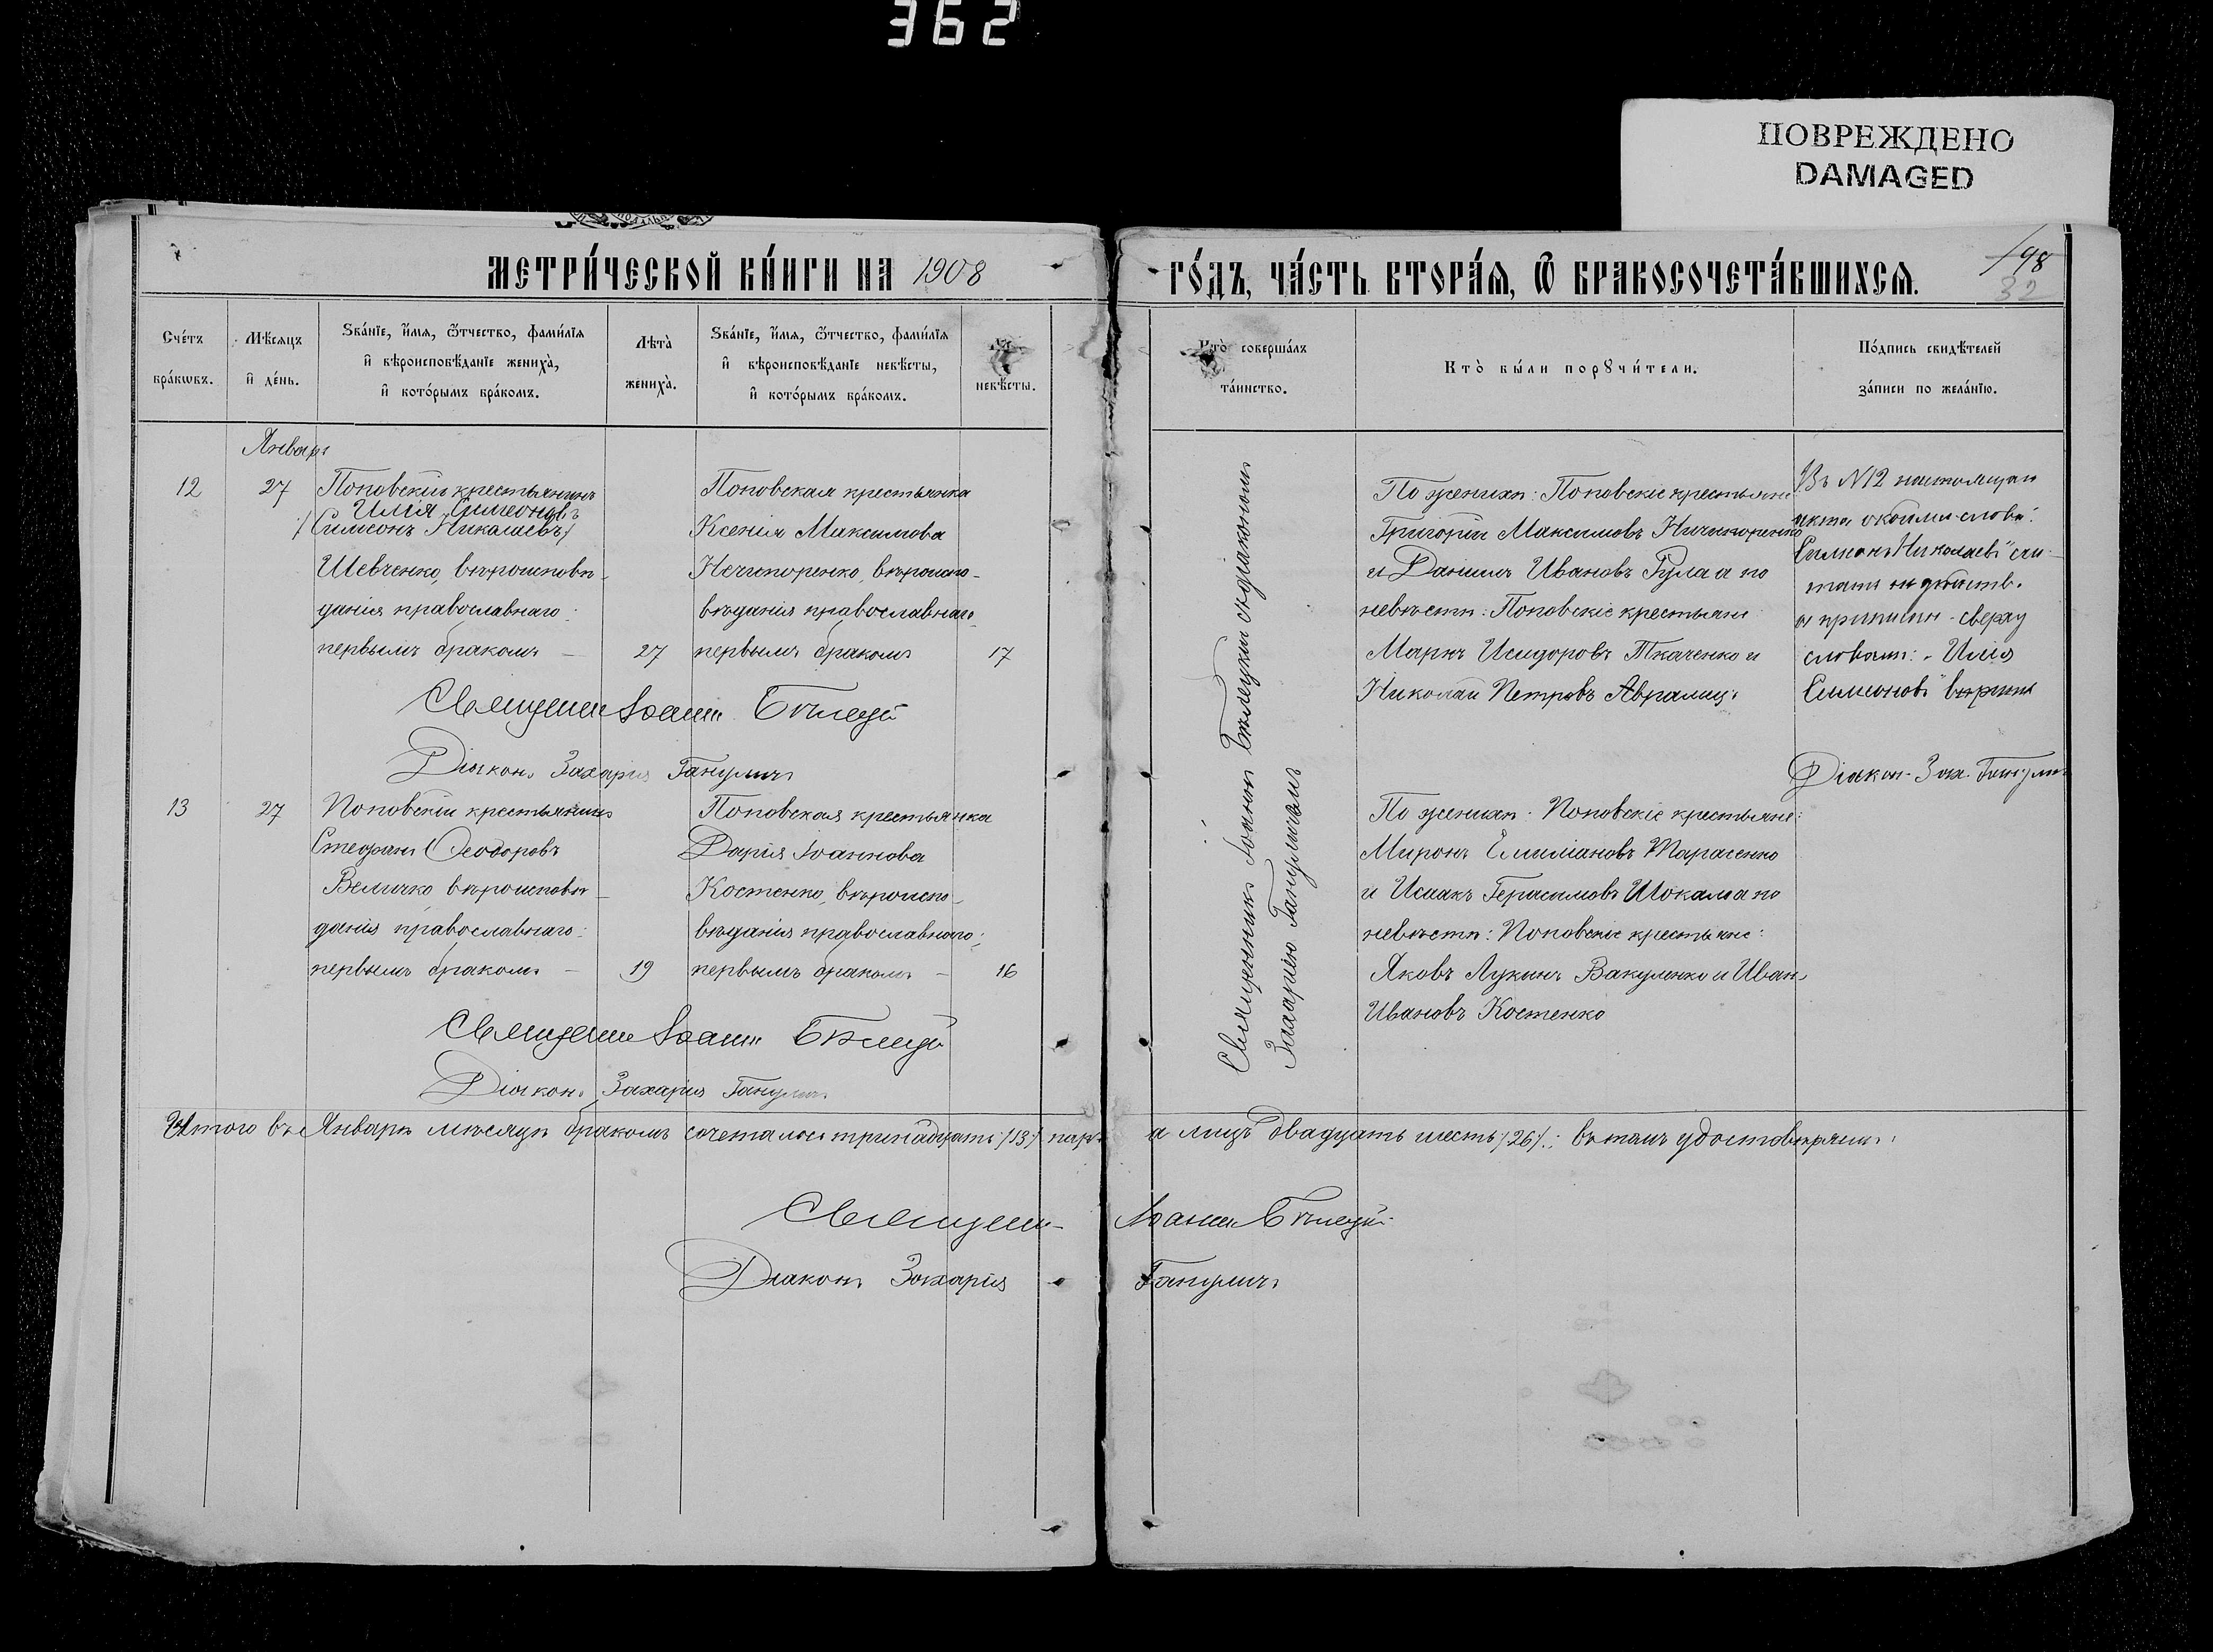 362
ПОВРЕЖДЕНО
DAMAGED
МЕТРИ́ЧЕСКОЙ КНИ́ГИ НА 1908
ГО́ДЪ, ЧА́СТЬ ВТОРА́Ѧ, Ѿ БРАКОСОЧЕТА́ВШИХСѦ.
198
32
Сче́тъ бра́кѡвъ.
Мѣ́сяцъ и҆ де́нь.
Ѕва́нїе, и҆́мя, ѻ҆́тчество, фами́лїя
и҆ вѣроисповѣ́данїе жениха̀,
и҆ кото́рымъ бра́комъ.
Лѣта̀ жениха̀.
Ѕва́нїе, и҆́мя, ѻ҆́тчество, фами́лїя
и҆ вѣроисповѣ́данїе невѣ́сты,
и҆ кото́рымъ бра́комъ.
невѣ́сты.
Кто̀ соверша́лъ
та́инство.
Кто̀ бы́ли порꙋчи́тели.
По́дпись свидѣ́телей
за́писи по жела́нїю.
Январь
12 27 Поповскій крестьянинъ
Илія Симеоновъ
/Симеонъ Николаевъ/
Шевченко, вѣроисповѣ-
данія православнаго:
первымъ бракомъ — 27
Поповская крестьянка
Ксенія Максимова
Нечипоренко, вѣроиспо-
вѣданія православнаго,
первымъ бракомъ 17
Священникъ Іоаннъ Бѣлецкій
Діаконъ Захарія Ганулич
Священникъ Іоаннъ Бѣлецкій съ діакономъ
Захаріею Гануличемъ
По женихѣ: Поповскіе крестьяне
Григорій Максимовъ Ничипоренко
и Даніилъ Ивановъ Гула а по
невѣстѣ: Поповскіе крестьяне
Маркъ Исидоровъ Ткаченко и
Николай Петровъ
Въ №12 настоящаго
акта слова:
Симеонъ Николаевъ" счи-
тать
а сверху
словамъ: „Илія
Симеоновъ" вѣрить
Діакон. Зах. Ганулич
13 27 Поповскій крестьянинъ
Стефанъ Ѳеодоровъ
Величко, вѣроисповѣ-
данія православнаго:
первымъ бракомъ — 19
Поповская крестьянка
Дарія Іоаннова
Костенко, вѣроиспо-
вѣданія православнаго:
первымъ бракомъ — 16
Священникъ Іоаннъ Бѣлецкій
Діаконъ Захарія Ганулич
По женихѣ: Поповскіе крестьяне:
Миронъ Емиліановъ Тарасенко
и Исаакъ Герасимовъ Шокала а по
невѣстѣ: Поповскіе крестьяне:
Яковъ Лукинъ Вакуленко и Иван
Ивановъ Костенко
Итого въ Январѣ мѣсяцѣ бракомъ сочеталось тринадцать /13/ паръ а лицъ двадцать шесть /26/.; въ томъ удостовѣряемъ:
Священникъ Іоаннъ Бѣлецкій
Діаконъ Захарія Гануличъ